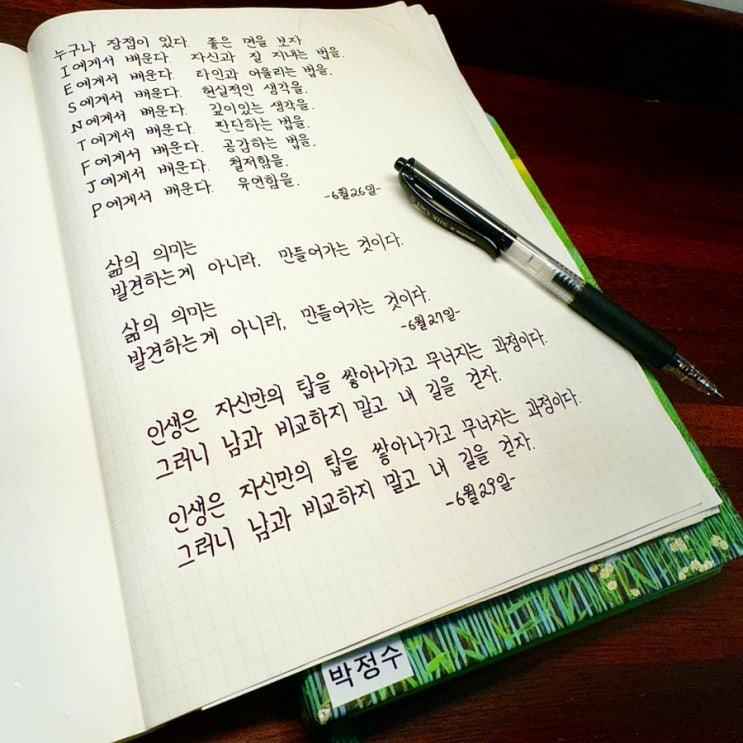 누구나 장점이 있다. 좋은 면을 보자
I에게서 배운다. 자신과 잘 지내는 법을.
E에게서 배운다. 타인과 어울리는 법을.
S에게서 배운다. 현실적인 생각을.
N에게서 배운다. 깊이있는 생각을.
T에게서 배운다. 판단하는 법을.
F에게서 배운다. 공감하는 법을.
J에게서 배운다. 철저함을.
P에게서 배운다. 유연함을.
-6월26일-
삶의 의미는
발견하는게 아니라, 만들어가는 것이다.
삶의 의미는
발견하는게 아니라, 만들어가는 것이다.
-6월27일-
인생은 자신만의 탑을 쌓아나가고 무너지는 과정이다.
그러니 남과 비교하지 말고 내 길을 걷자.
인생은 자신만의 탑을 쌓아나가고 무너지는 과정이다.
그러니 남과 비교하지 말고 내 길을 걷자.
-6월29일-
박정수